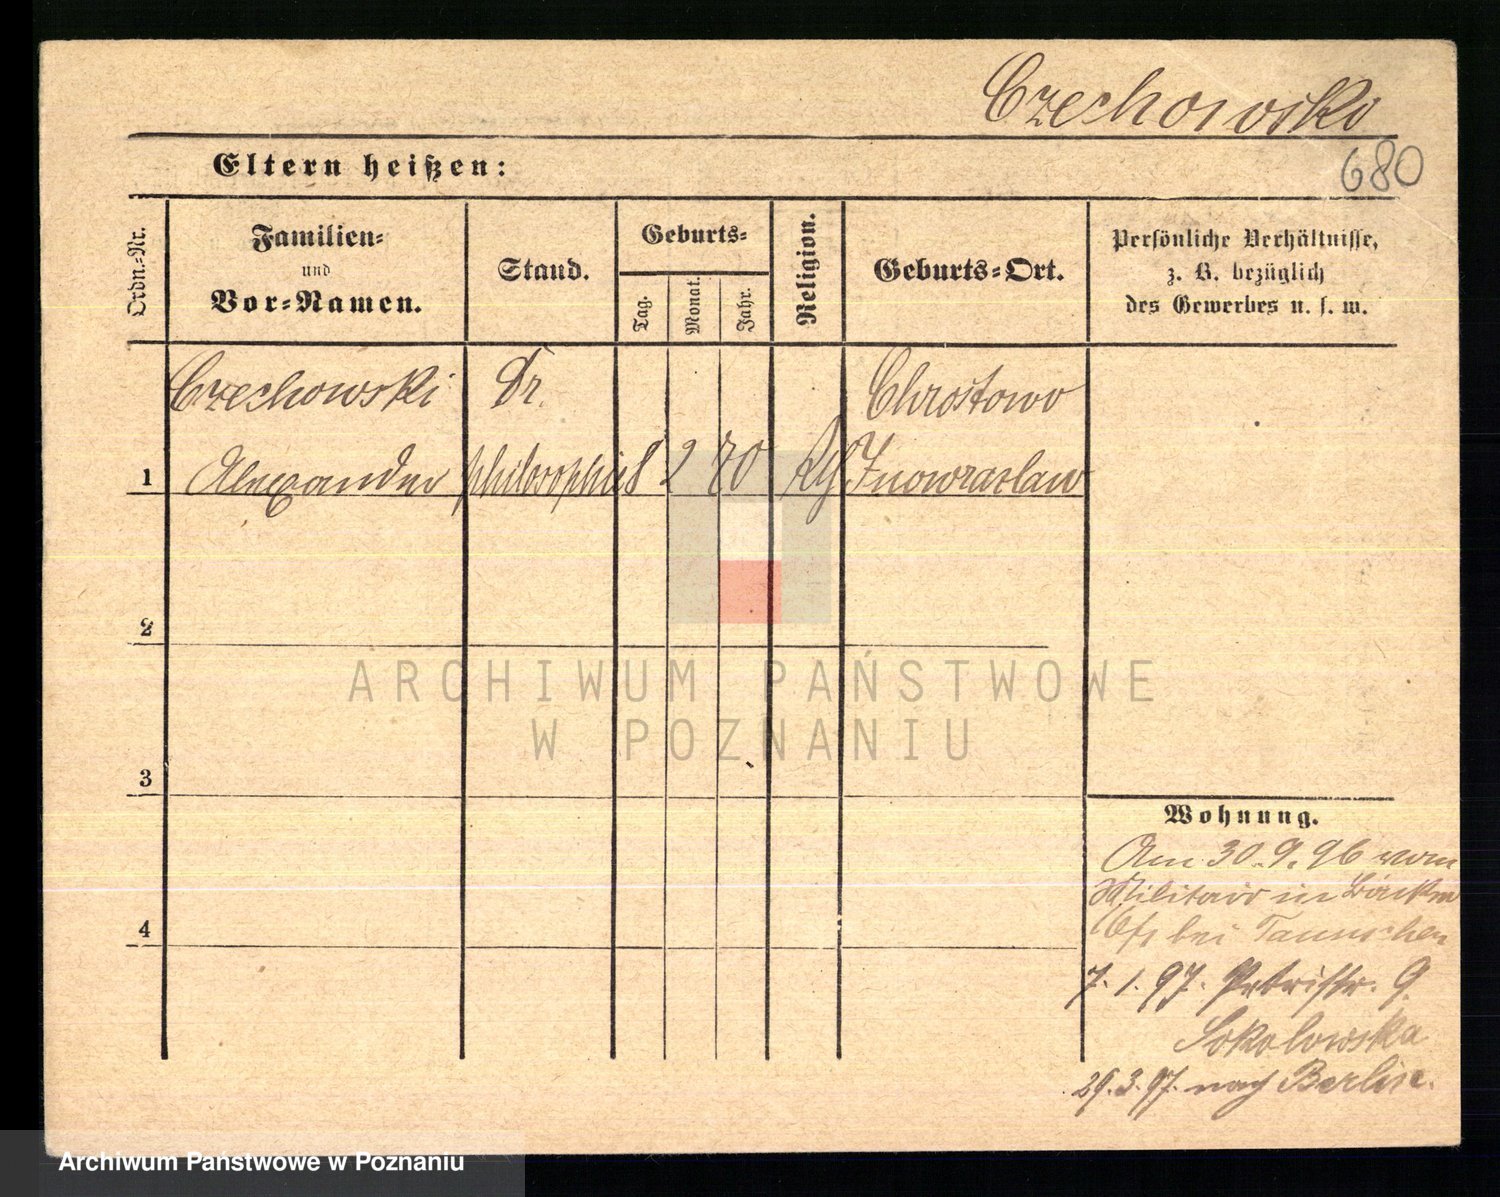 Czechowski
680
Eltern heißen:
Ordn.-Nr.
Familien-
und
Vor-Namen.
Stand.
Geburts-
Tag.
Monat.
Jahr.
Religion.
Geburts-Ort.
Persönliche Verhältnisse,
z. B. bezüglich
des Gewerbes u. s. w.
Czechowski Dr. Chrostowo
1 Alexander philosophie 8 2 70 Inowrazlaw
2
3
4
Wohnung.
Am 30.9.96 vom
Militair in
bei
7.1.97. Petristr. 9.
Sokolowska
29.3.97. nach Berlin.
ARCHIWUM PAŃSTWOWE
W POZNANIU
Archiwum Państwowe w Poznaniu